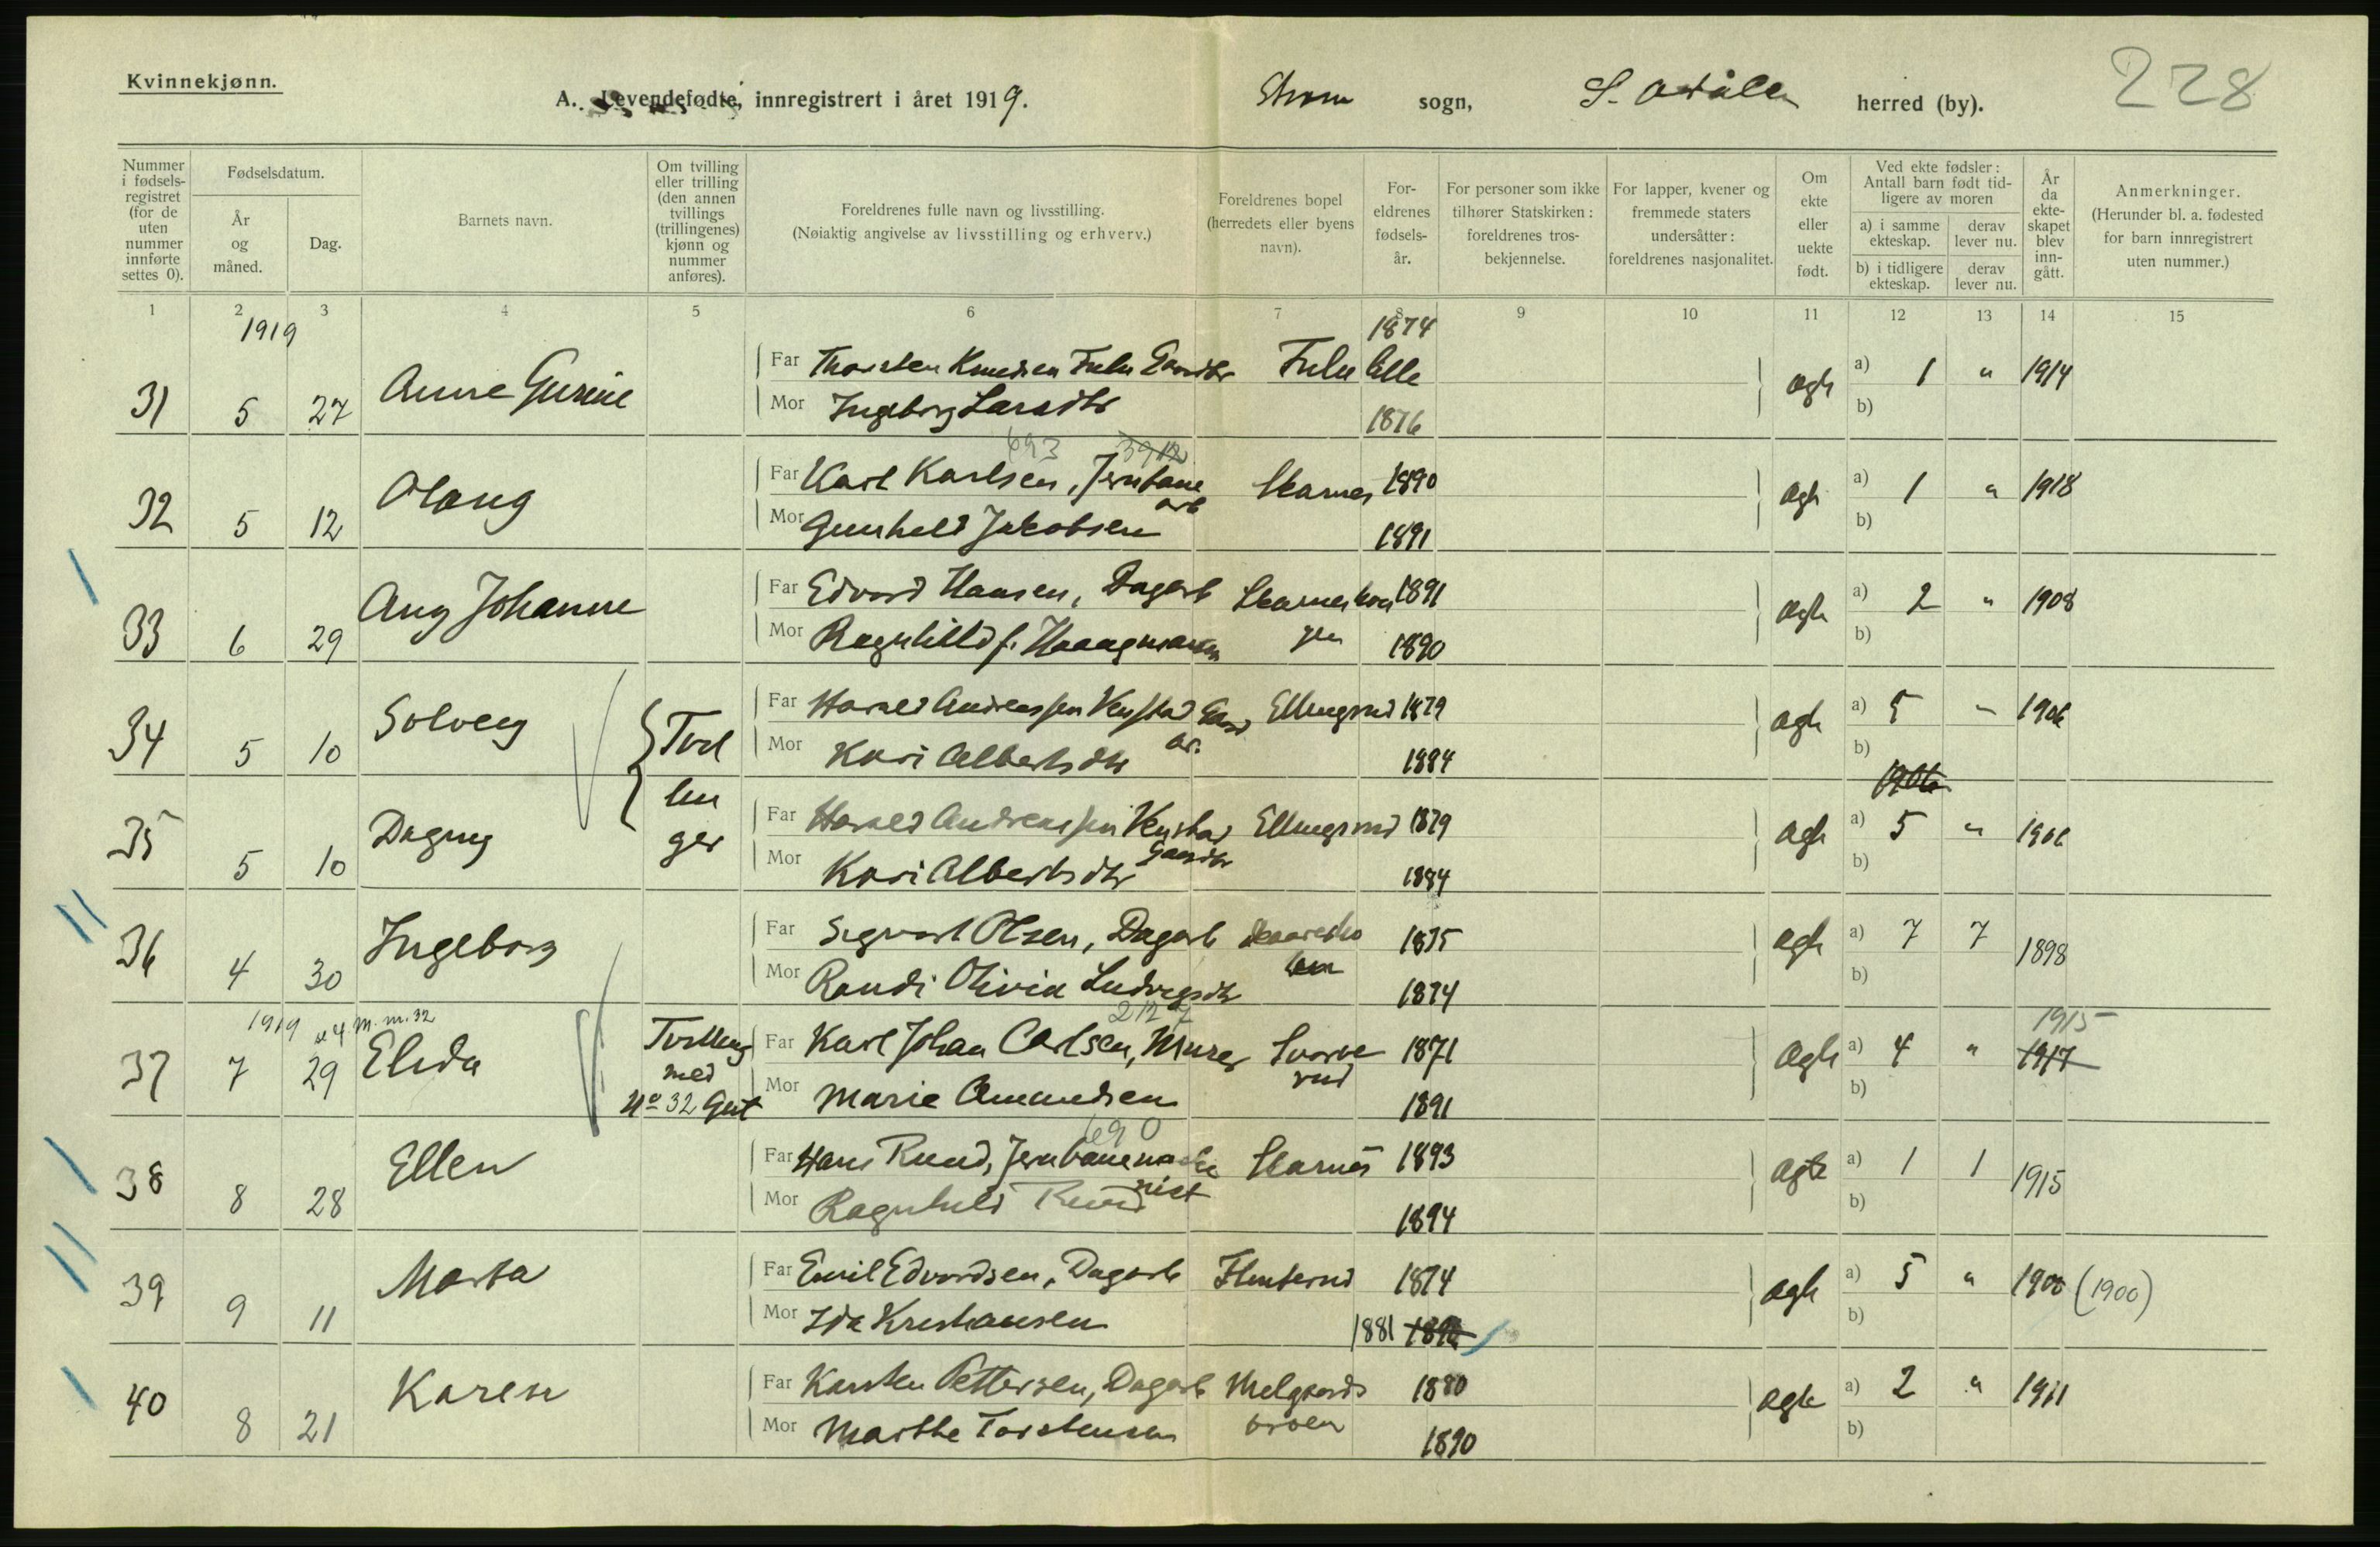 Kvinnekjønn.
A. Levendefødte, innregistrert i året 1919. Strøm sogn, S. Odalen herred (by). 228
Nummer i fødsels-registret (for de uten nummer innførte settes 0).
Fødselsdatum.
År og måned.
Dag.
Barnets navn.
Om tvilling eller trilling (den annen tvillings (trillingenes) kjønn og nummer anføres).
Foreldrenes fulle navn og livsstilling.
(Nøiaktig angivelse av livsstilling og erhverv.)
Foreldrenes bopel (herredets eller byens navn).
For-eldrenes fødsels-år.
For personer som ikke tilhører Statskirken: foreldrenes tros-bekjennelse.
For lapper, kvener og fremmede staters undersåtter: foreldrenes nasjonalitet.
Om ekte eller uekte født.
Ved ekte fødsler: Antall barn født tid-ligere av moren
a) i samme ekteskap.
derav lever nu.
b) i tidligere ekteskap.
derav lever nu.
År da ekte-skapet blev inn-gått.
Anmerkninger.
(Herunder bl. a. fødested for barn innregistrert uten nummer.)
1 2 3 4 5 6 7 8 9 10 11 12 13 14 15
1919 1874
31 5 27 Anne Gurine Far Thorsten Knudsen Fulu Gaardbr Fulu ægte a) 1 " 1914
Mor Ingeborg Larsdtr 1876 b)
693 3912
32 5 12 Olaug Far Karl Karlsen, Jernbane arb Skarnes 1890 ægte a) 1 " 1918
Mor Gunhild Jakobsen 1891 b)
33 6 29 Aug Johanne Far Edvard Hansen, Dagarb 1891 ægte a) 2 " 1908
Mor Ragnhild f. 1890 b)
34 5 10 Solveig Tvil Far Harald Andreassen Venstad Gaardbr. Ellingsrud 1879 ægte a) 5 " 1906
Mor Kari Albertsdtr 1884 b)
lin 1906
35 5 10 Dagny ger Far Harald Andreassen Venstad Gaardbr Ellingsrud 1879 ægte a) 5 " 1906
Mor Kari Albertsdtr 1884 b)
36 4 30 Ingeborg Far Sigvart Olsen, Dagarb 1875 ægte a) 7 7 1898
Mor Randi Olivia Ludvigsdtr 1874 b)
1919 m. m. 32 2127 1915
37 7 29 Elida Tvilling med No 32 Gut Far Karl Johan Carlsen, Murer 1871 ægte a) 4 " 1917
Mor Marie Amundsen 1891 b)
690
38 8 28 Ellen Far Hans Ruud, Jernbanemaskinist Skarnes 1893 ægte a) 1 1 1915
Mor Ragnhild Ruud 1894 b)
39 9 11 Marta Far Emil Edvardsen, Dagarb 1874 ægte a) 5 " 1900 (1900)
Mor Ida Kristiansen 1881 b)
40 8 21 Karen Far Karsten Pettersen, Dagarb Melgaards 1880 ægte a) 2 " 1911
Mor Marthe Torstensen 1890 b)